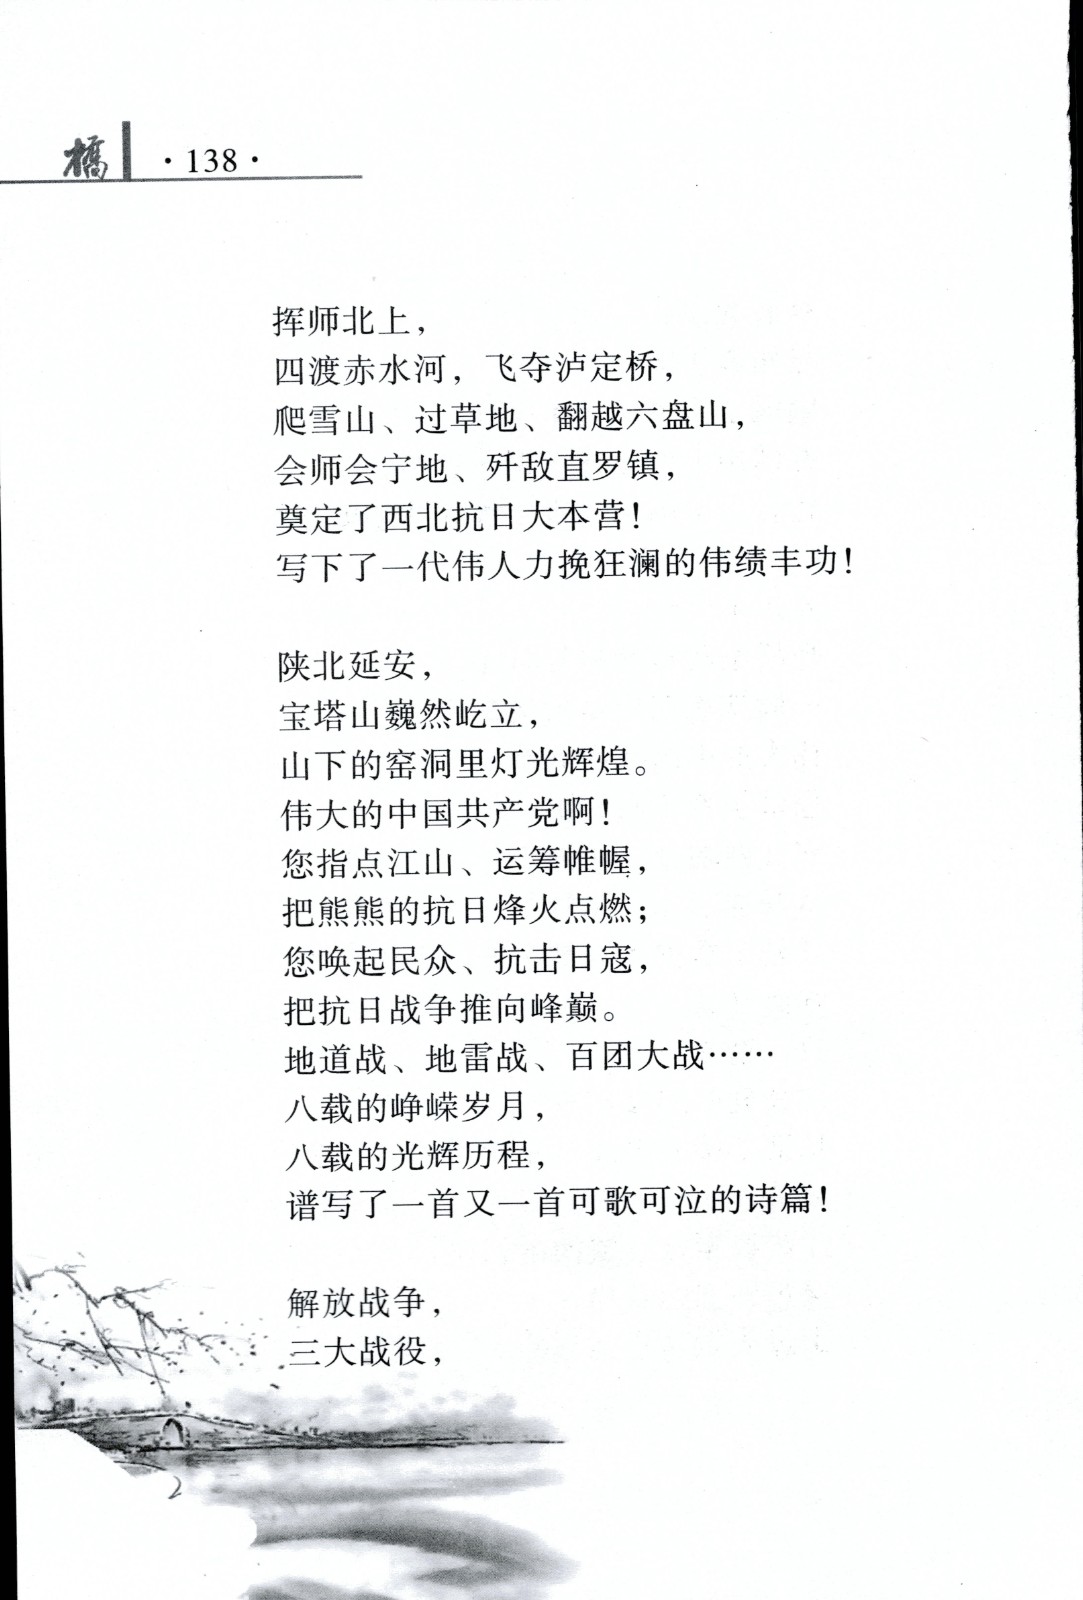 橋
·138·
挥师北上，
四渡赤水河，飞夺泸定桥，
爬雪山、过草地、翻越六盘山，
会师会宁地、歼敌直罗镇，
奠定了西北抗日大本营！
写下了一代伟人力挽狂澜的伟绩丰功！
陕北延安，
宝塔山巍然屹立，
山下的窑洞里灯光辉煌。
伟大的中国共产党啊！
您指点江山、运筹帷幄，
把熊熊的抗日烽火点燃；
您唤起民众、抗击日寇，
把抗日战争推向峰巅。
地道战、地雷战、百团大战……
八载的峥嵘岁月，
八载的光辉历程，
谱写了一首又一首可歌可泣的诗篇！
解放战争，
三大战役，